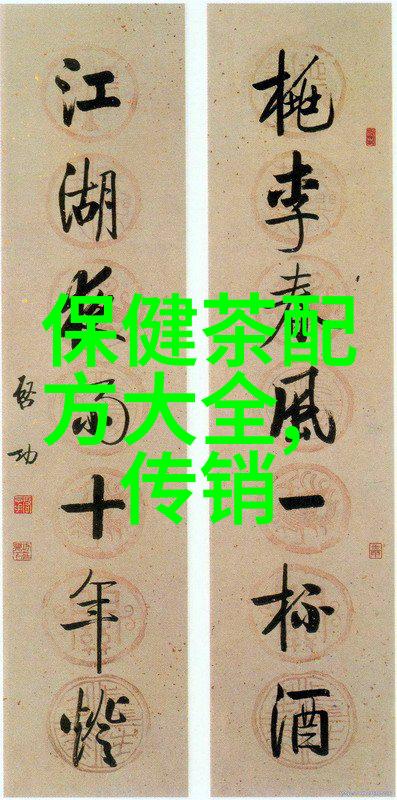 桃李春风一杯酒
江湖夜雨十年灯
启功
保健茶配
方大全,
传销